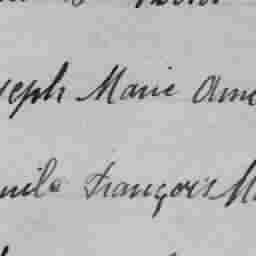 seph Marie Ama
mile François M